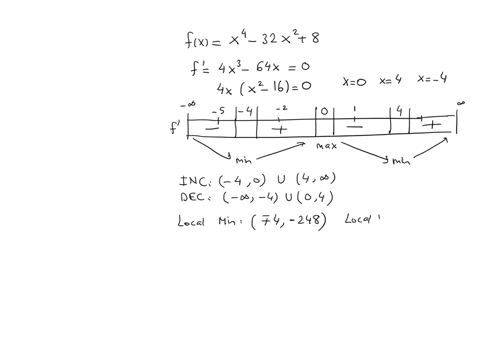 f(x) = x⁴ - 32x² + 8
f' = 4x³ - 64x = 0
4x (x² - 16) = 0 x=0 x=4 x=-4
-∞ -5 -4 -2 0 1 4 ∞
f' - + - +
min max min
INC: (-4, 0) U (4, ∞)
DEC: (-∞, -4) U (0, 4)
Local Min: (∓4, -248) Local :